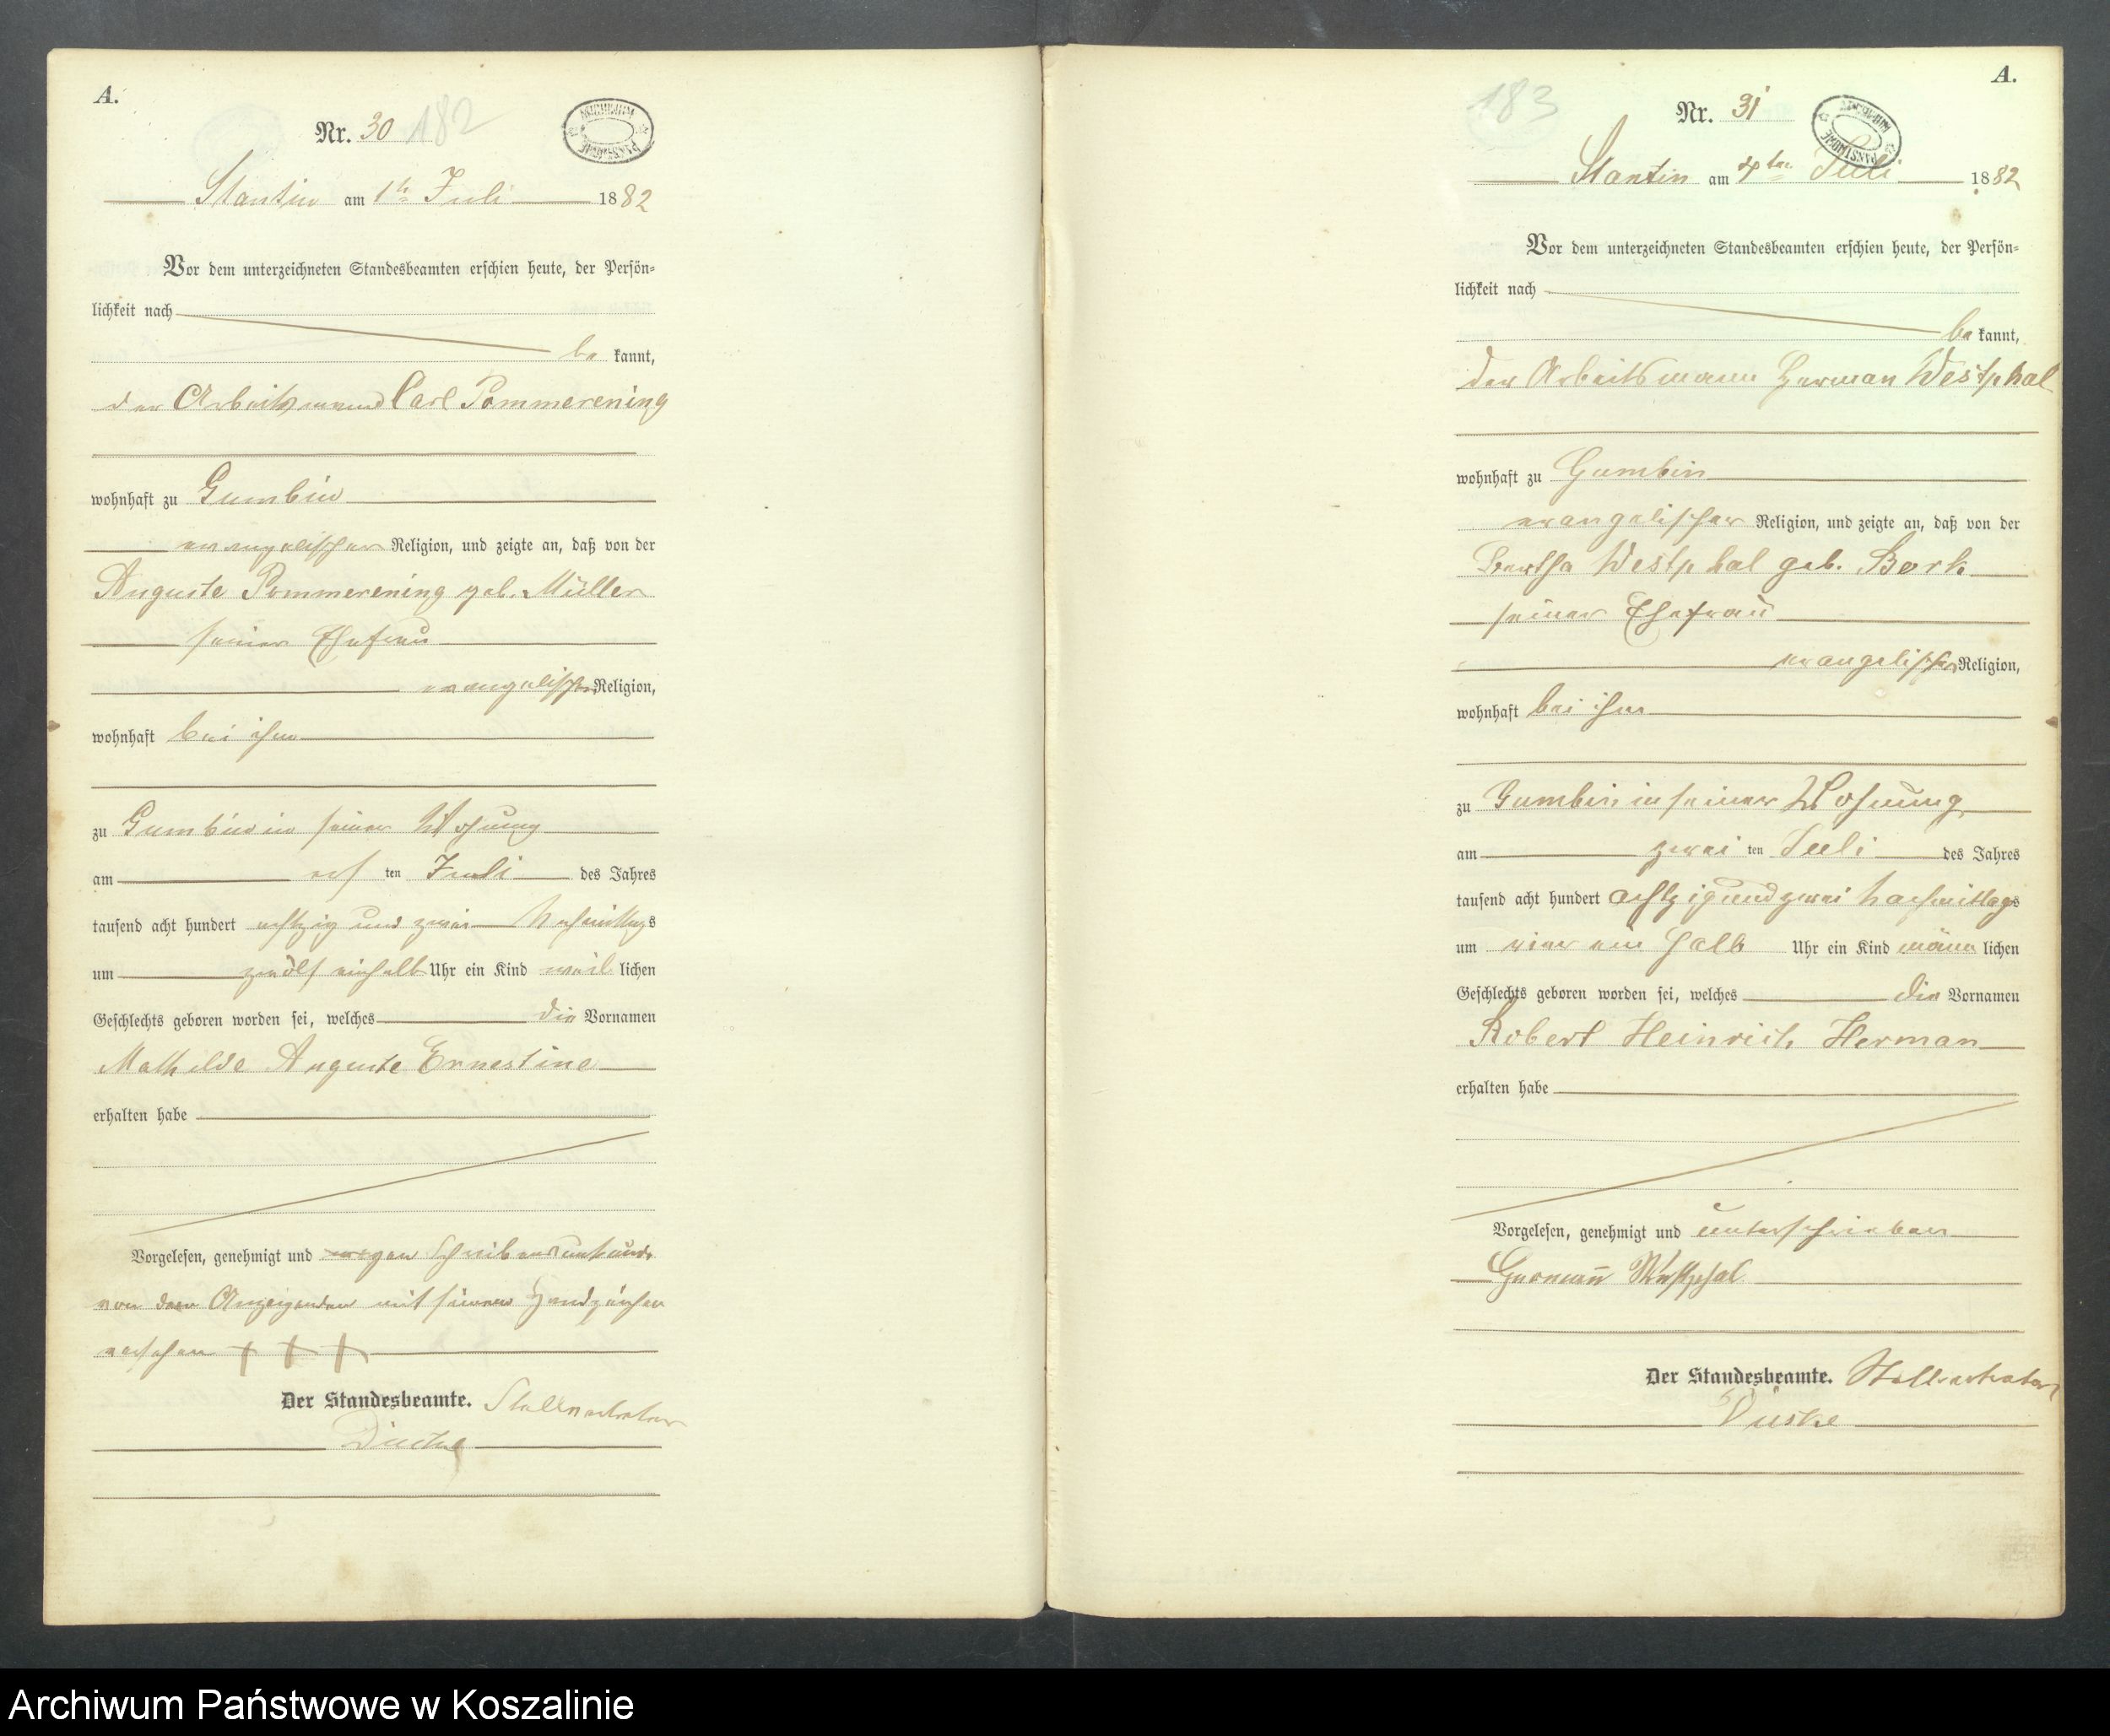 A.
Nr. 30 182
ARCHIWUM PAŃSTWOWE
Stantin am 1t Juli 1882
Vor dem unterzeichneten Standesbeamten erschien heute, der Persön=
lichkeit nach
be kannt,
der Arbeitsmann Carl Pommerening
wohnhaft zu Gumbin
evangelischer Religion, und zeigte an, daß von der
Auguste Pommerening geb. Müller
seiner Ehefrau
evangelischer Religion,
wohnhaft bei ihm
zu Gumbin in seiner Wohnung
am ten Juli des Jahres
tausend acht hundert achtzig und zwei Nachmittags
um zwölf einhalb Uhr ein Kind weib lichen
Geschlechts geboren worden sei, welches die Vornamen
Mathilde Auguste Ernestine
erhalten habe
Vorgelesen, genehmigt und wegen Schreibensunkunde
von dem Anzeigenden mit seinem Handzeichen
versehen + + +
Der Standesbeamte. Stellvertreter
A.
183
Nr. 31
ARCHIWUM PAŃSTWOWE
Stantin am 4ten Juli 1882
Vor dem unterzeichneten Standesbeamten erschien heute, der Persön=
lichkeit nach
be kannt,
der Arbeitsmann Herman Westphal
wohnhaft zu Gumbin
evangelischer Religion, und zeigte an, daß von der
Bertha Westphal geb. Bork
seiner Ehefrau
evangelischer Religion,
wohnhaft bei ihm
zu Gumbin in seiner Wohnung
am zwei ten Juli des Jahres
tausend acht hundert achtzig und zwei Nachmittags
um vier ein halb Uhr ein Kind männ lichen
Geschlechts geboren worden sei, welches die Vornamen
Robert Heinrich Herman
erhalten habe
Vorgelesen, genehmigt und unterschrieben
Hermann Westphal
Der Standesbeamte. Stellvertreter
Archiwum Państwowe w Koszalinie